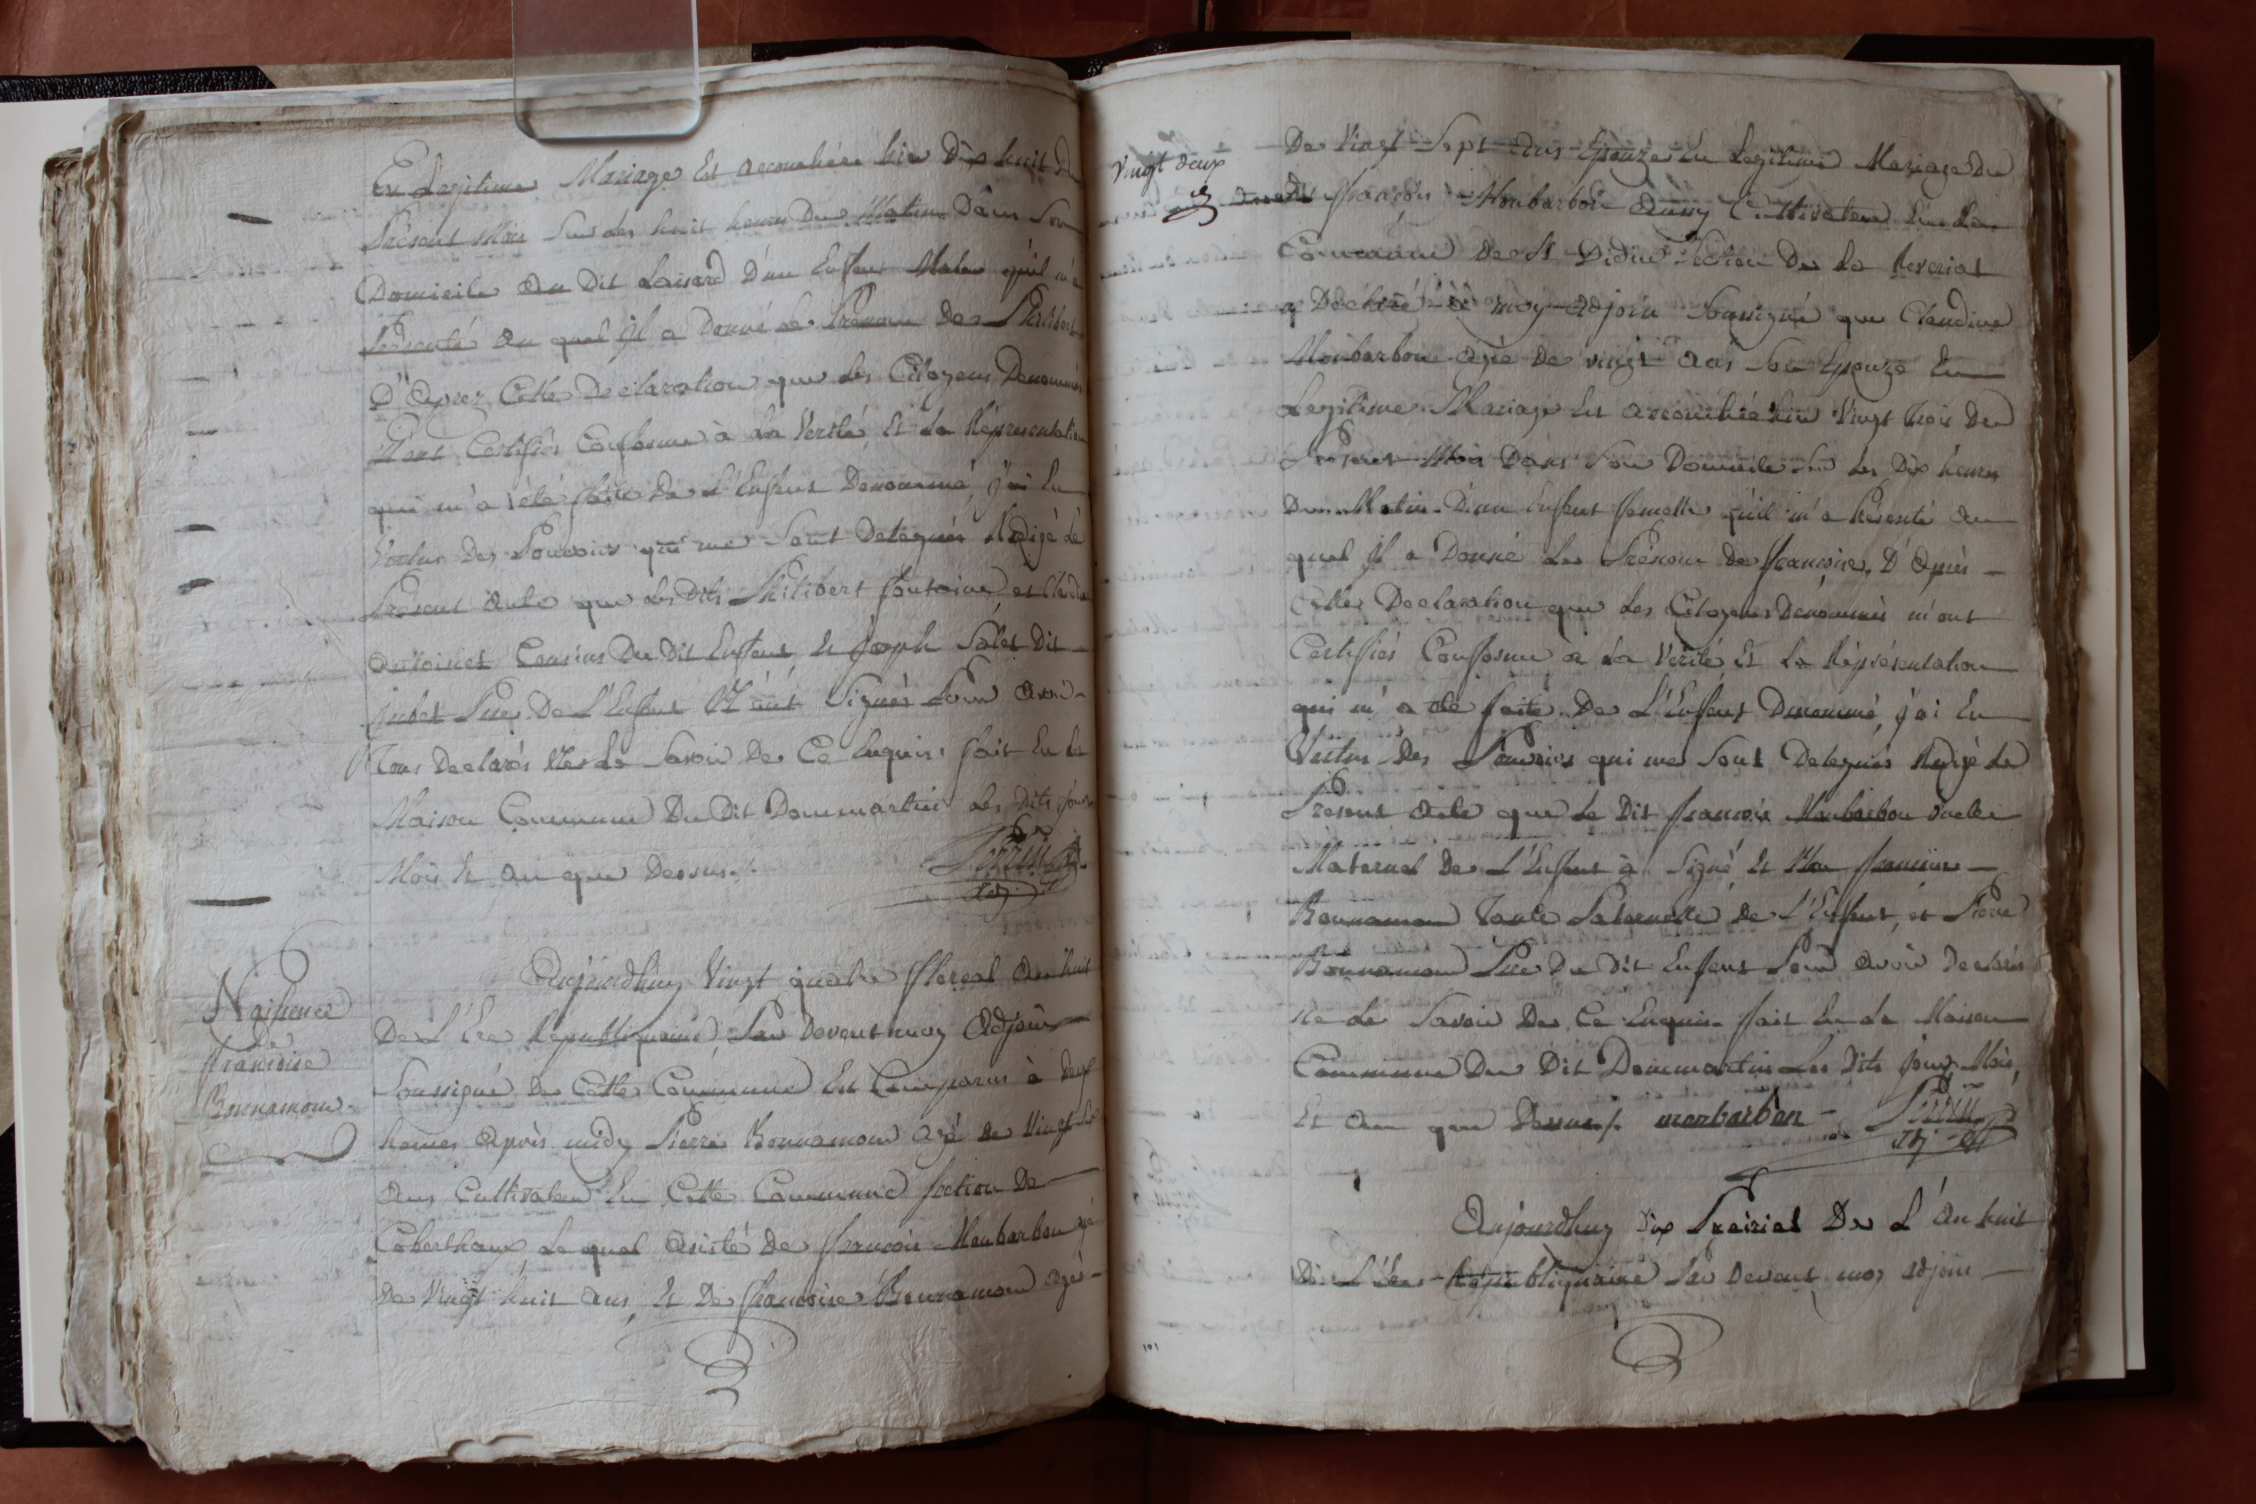 En Legitime Mariage Est accouchée hier Dix huit Du
Présent Mois Sur les huit heures Du Matin Dans Son
Domicile Au Dit Laisard D'un Enfant Male qu'il m'a
Présenté Au quel Jl a Donné le Prénom De Philibert
D'Après Cette Declaration que les Citoyens Denommés
M'ont Certifiés Conforme à La Verité Et La Répresentation
qui m'a été faite De L'Enfant Denommé, J'ai En
Vertus Des Pouvoirs qui me Sont Delegués Redigé Le
Présent Acte que Les Dits Philibert fontaine et Claudine
Antoinet Cousins Du Dit Enfant, Et Joseph Salet Dit
Jubet Pere De L'Enfant N'ont Signés Pour Avoir
Tous Declarés Ne Le Savoir De Ce Enquis. fait En La
Maison Commune Du Dit Dommartin Les Dits Jour
Mois Et An que Dessus./.
Adj.
Naissence
de
françoise
Bonnamour
Aujourdhuy Vingt quatre floreal An huit
De L'Ere Republiquaine, Par Devant moy Adjoin
Soussigné De Cette Commune Est Comparus à Deux
heures Après midy Pierre Bonnamour agé De Vingt Six
Ans Cultivateur En Cette Commune Section De
Coberthoux Le quel Asisté De françois Monbarbon agé
De Vingt huit Ans, Et De francoise Bonnamour Agée
Vingt deux
De Vingt Sept Ans Epouze En Legitime Mariage Du
françois Monbarbon Aussy Cultivateur En La
Commune De St Didier Section De La Reveriat
a Déclaré à moy Adjoin Soussigné que Claudine
Monbarbon agée De vingt Ans Son Epouze En
Legitime Mariage Est accouchée hier Vingt trois Du
Présent Mois Dans Son Domicile Sur Les Dix heures
Du Matin D'un Enfant femelle qu'il m'a Présenté Au
quel Jl a Donné Le Prénom De françoise, D'Après
Cette Declaration que Les Citoyens Denommés m'ont
Certifiés Conforme à La Verité, Et La Répresentation
qui m'a été faite De L'Enfant Denommé, J'ai En
Vertus Des Pouvoirs qui me Sont Delegués Redigé Le
Présent Acte que Le Dit françois Monbarbon oncle
Maternel De L'Enfant à Signé Et Non françoise
Bonnamour Tante Paternelle De L'Enfant, et Pierre
Bonnamour Pere Du Dit Enfant Pour Avoir Declarés
Ne Le Savoir De Ce Enquis. fait En La Maison
Commune Du Dit Dommartin Les Dits Jour, Mois,
Et An que Dessus./. monbarbon
Adj.
Aujourdhuy Dix Prairial De L'An huit
De L'Ere Republiquaine Par Devant moy Adjoin